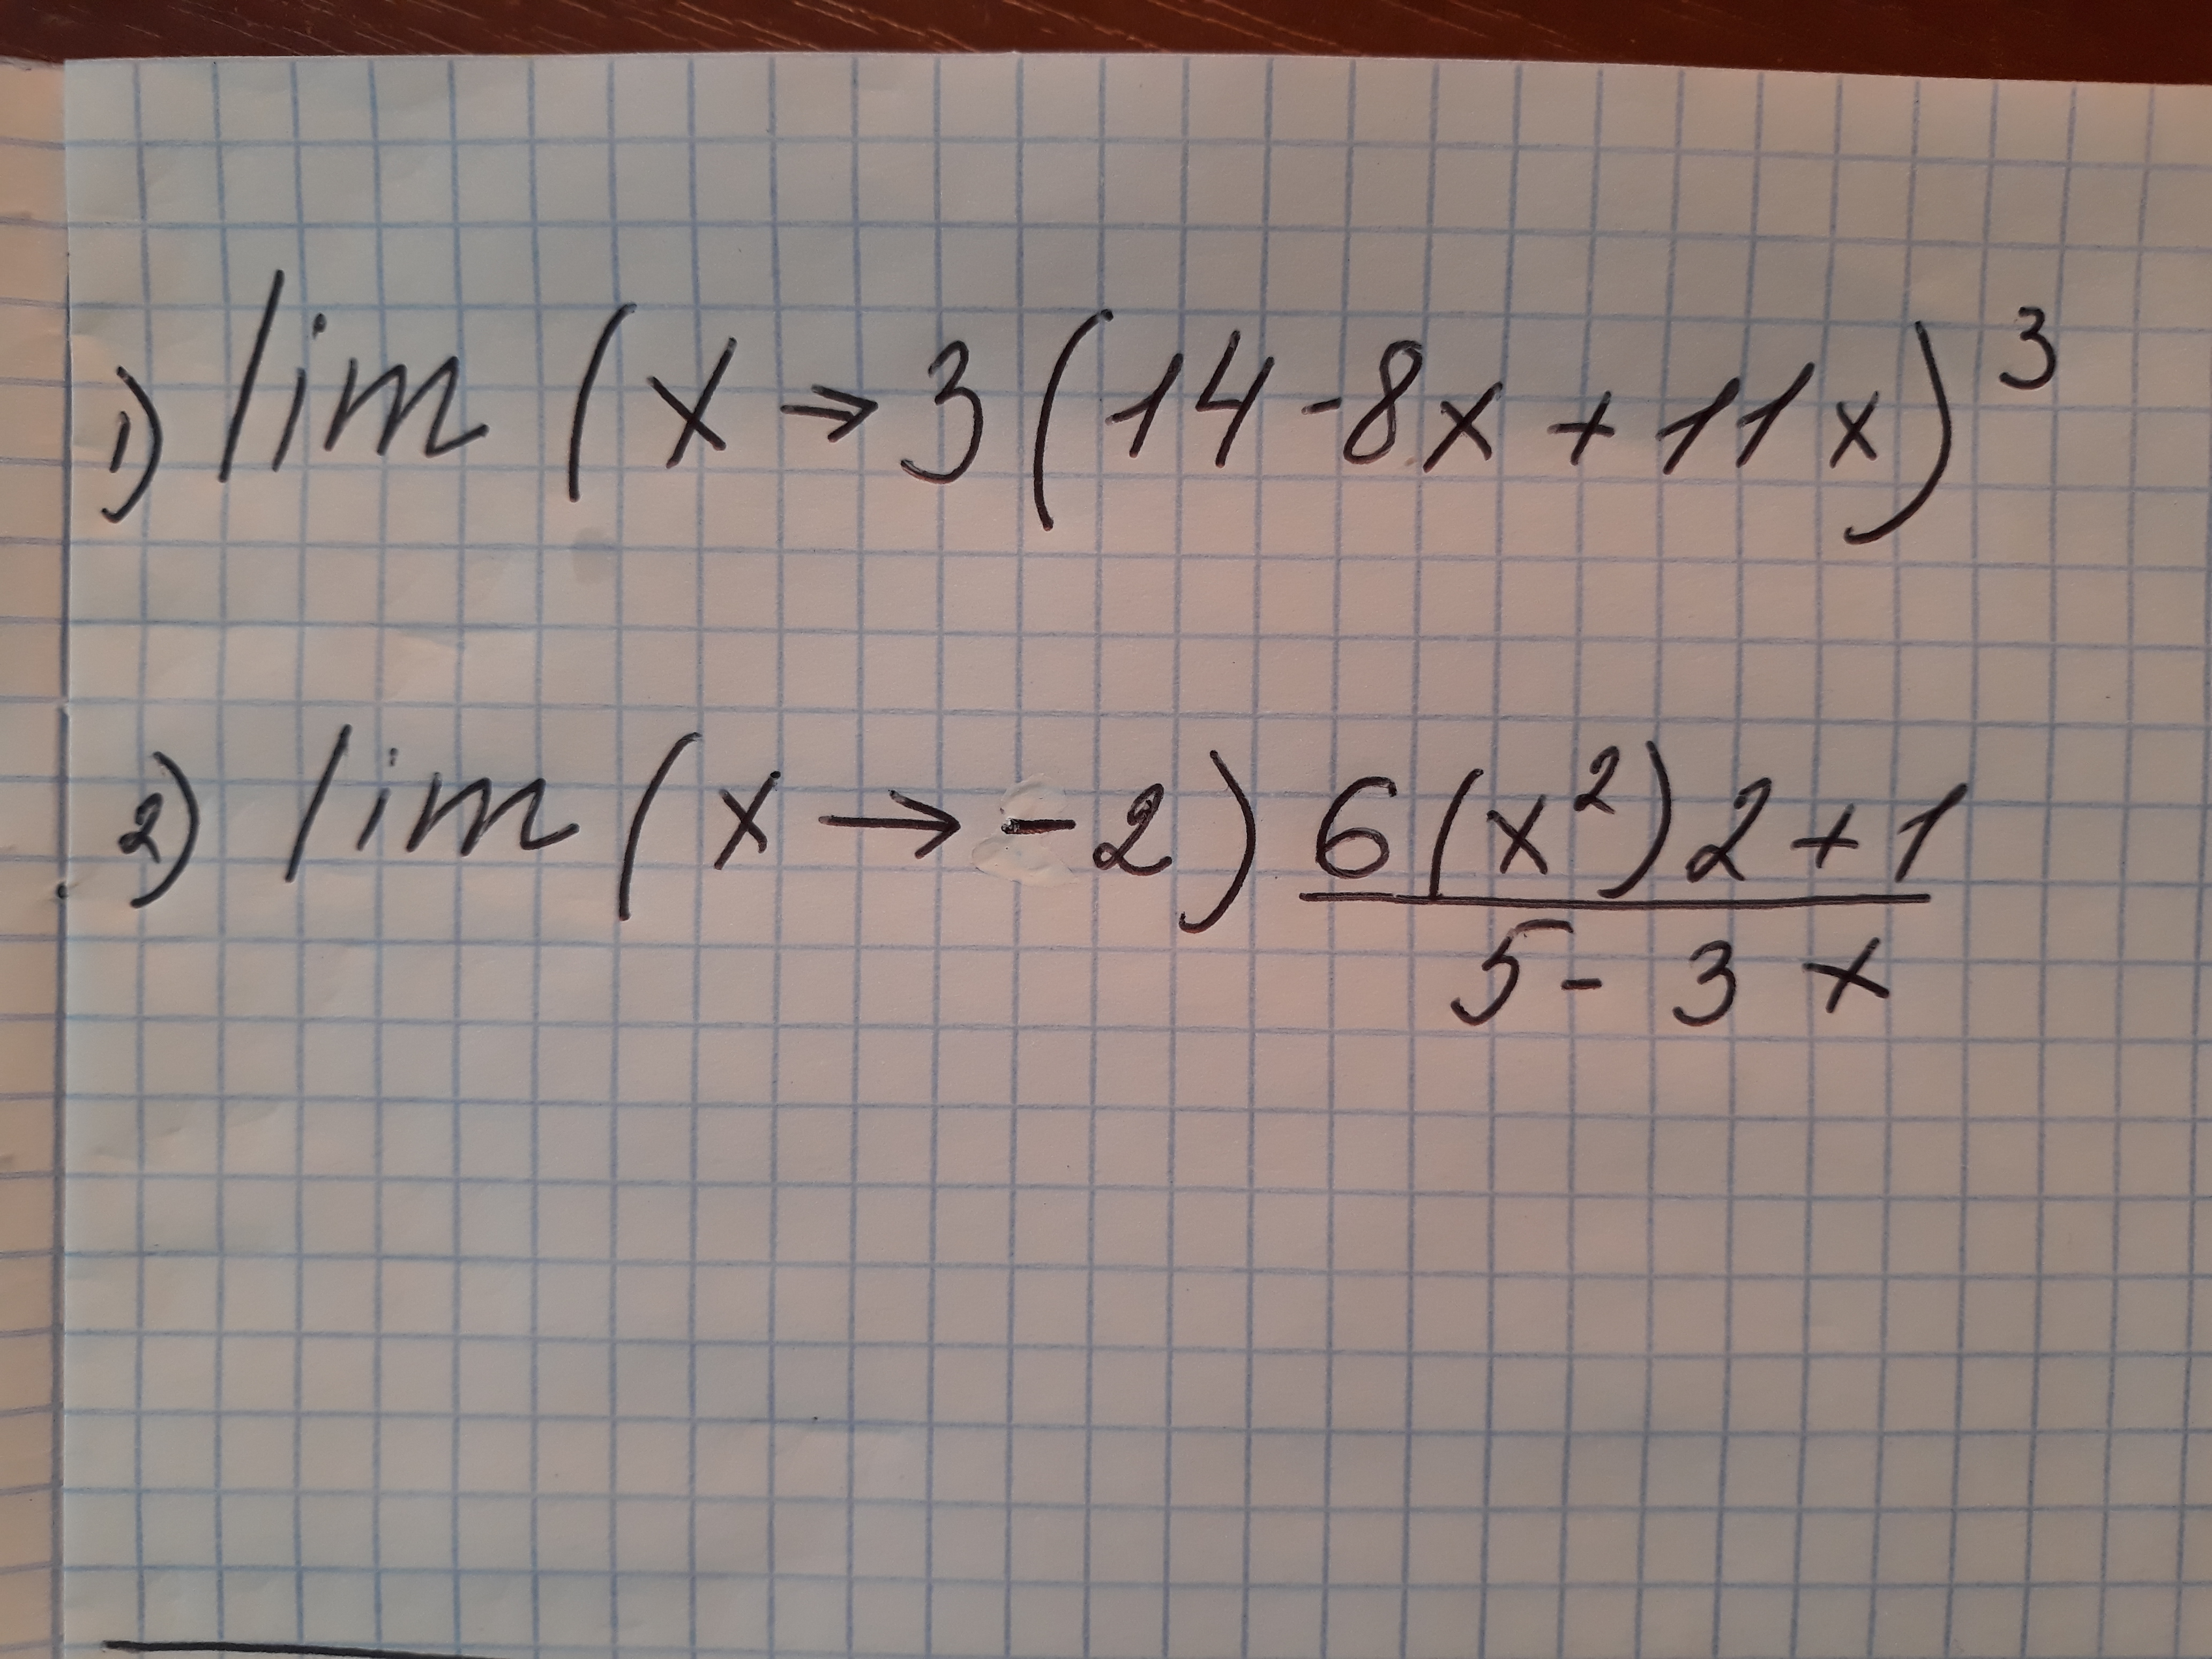 1) lim (x → 3 (14 - 8x + 11x)³
2) lim (x → - 2) 6(x²)2 + 1
5 - 3 x